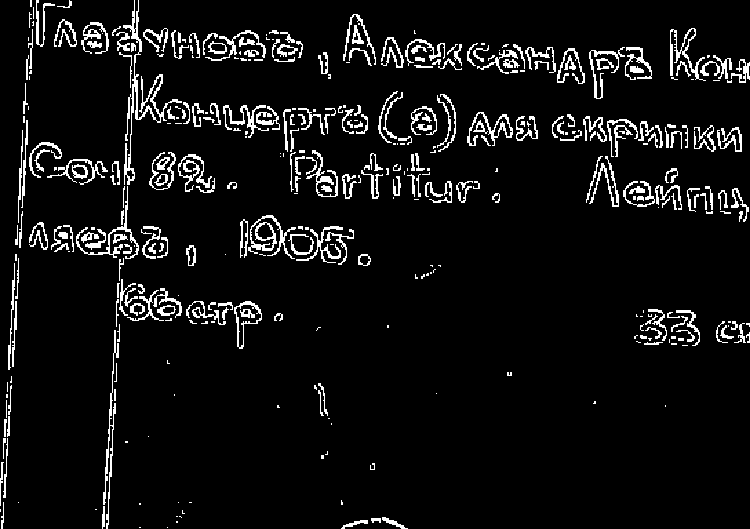 Глазуновъ, Александръ Кон
Концертъ (a) для скрипки
Соч. 82. Partitur. Лейпц
ляевъ, 1905.
66 стр. 33 см